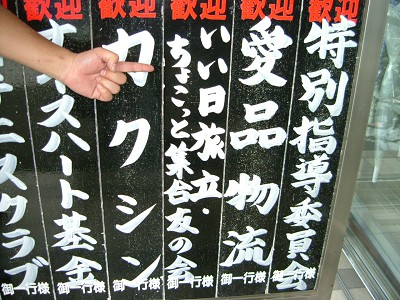 歓迎
特別指導委員会
御一行様
歓迎
愛品物流
御一行様
歓迎
いい日旅立・
ちょこっと集合友の会
御一行様
歓迎
カクシン
御一行様
歓迎
スハート基金
御一行様
ニスクラブ
御一行様